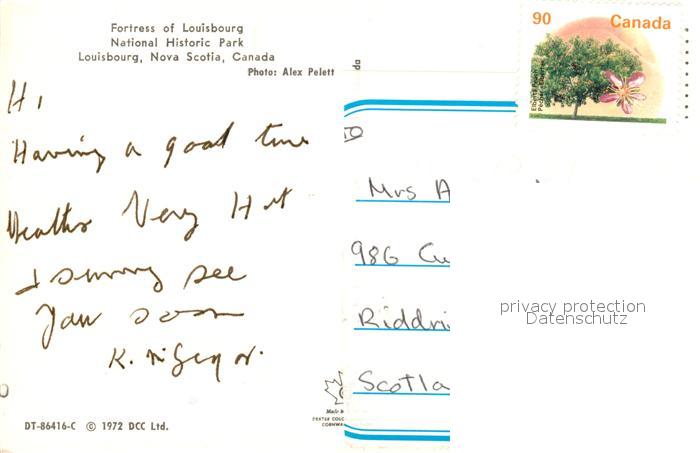 Fortress of Louisbourg
National Historic Park
Louisbourg, Nova Scotia, Canada
Photo: Alex Pelett
Hi
Having a good time
Very Hot
& sunny see
You soon
K.
DT-86416-C © 1972 DCC Ltd.
da
90 Canada
Mrs A
986 Cu
Riddri
Scotla
privacy protection
Datenschutz
Made in
DEXTER COLO
CORNWA